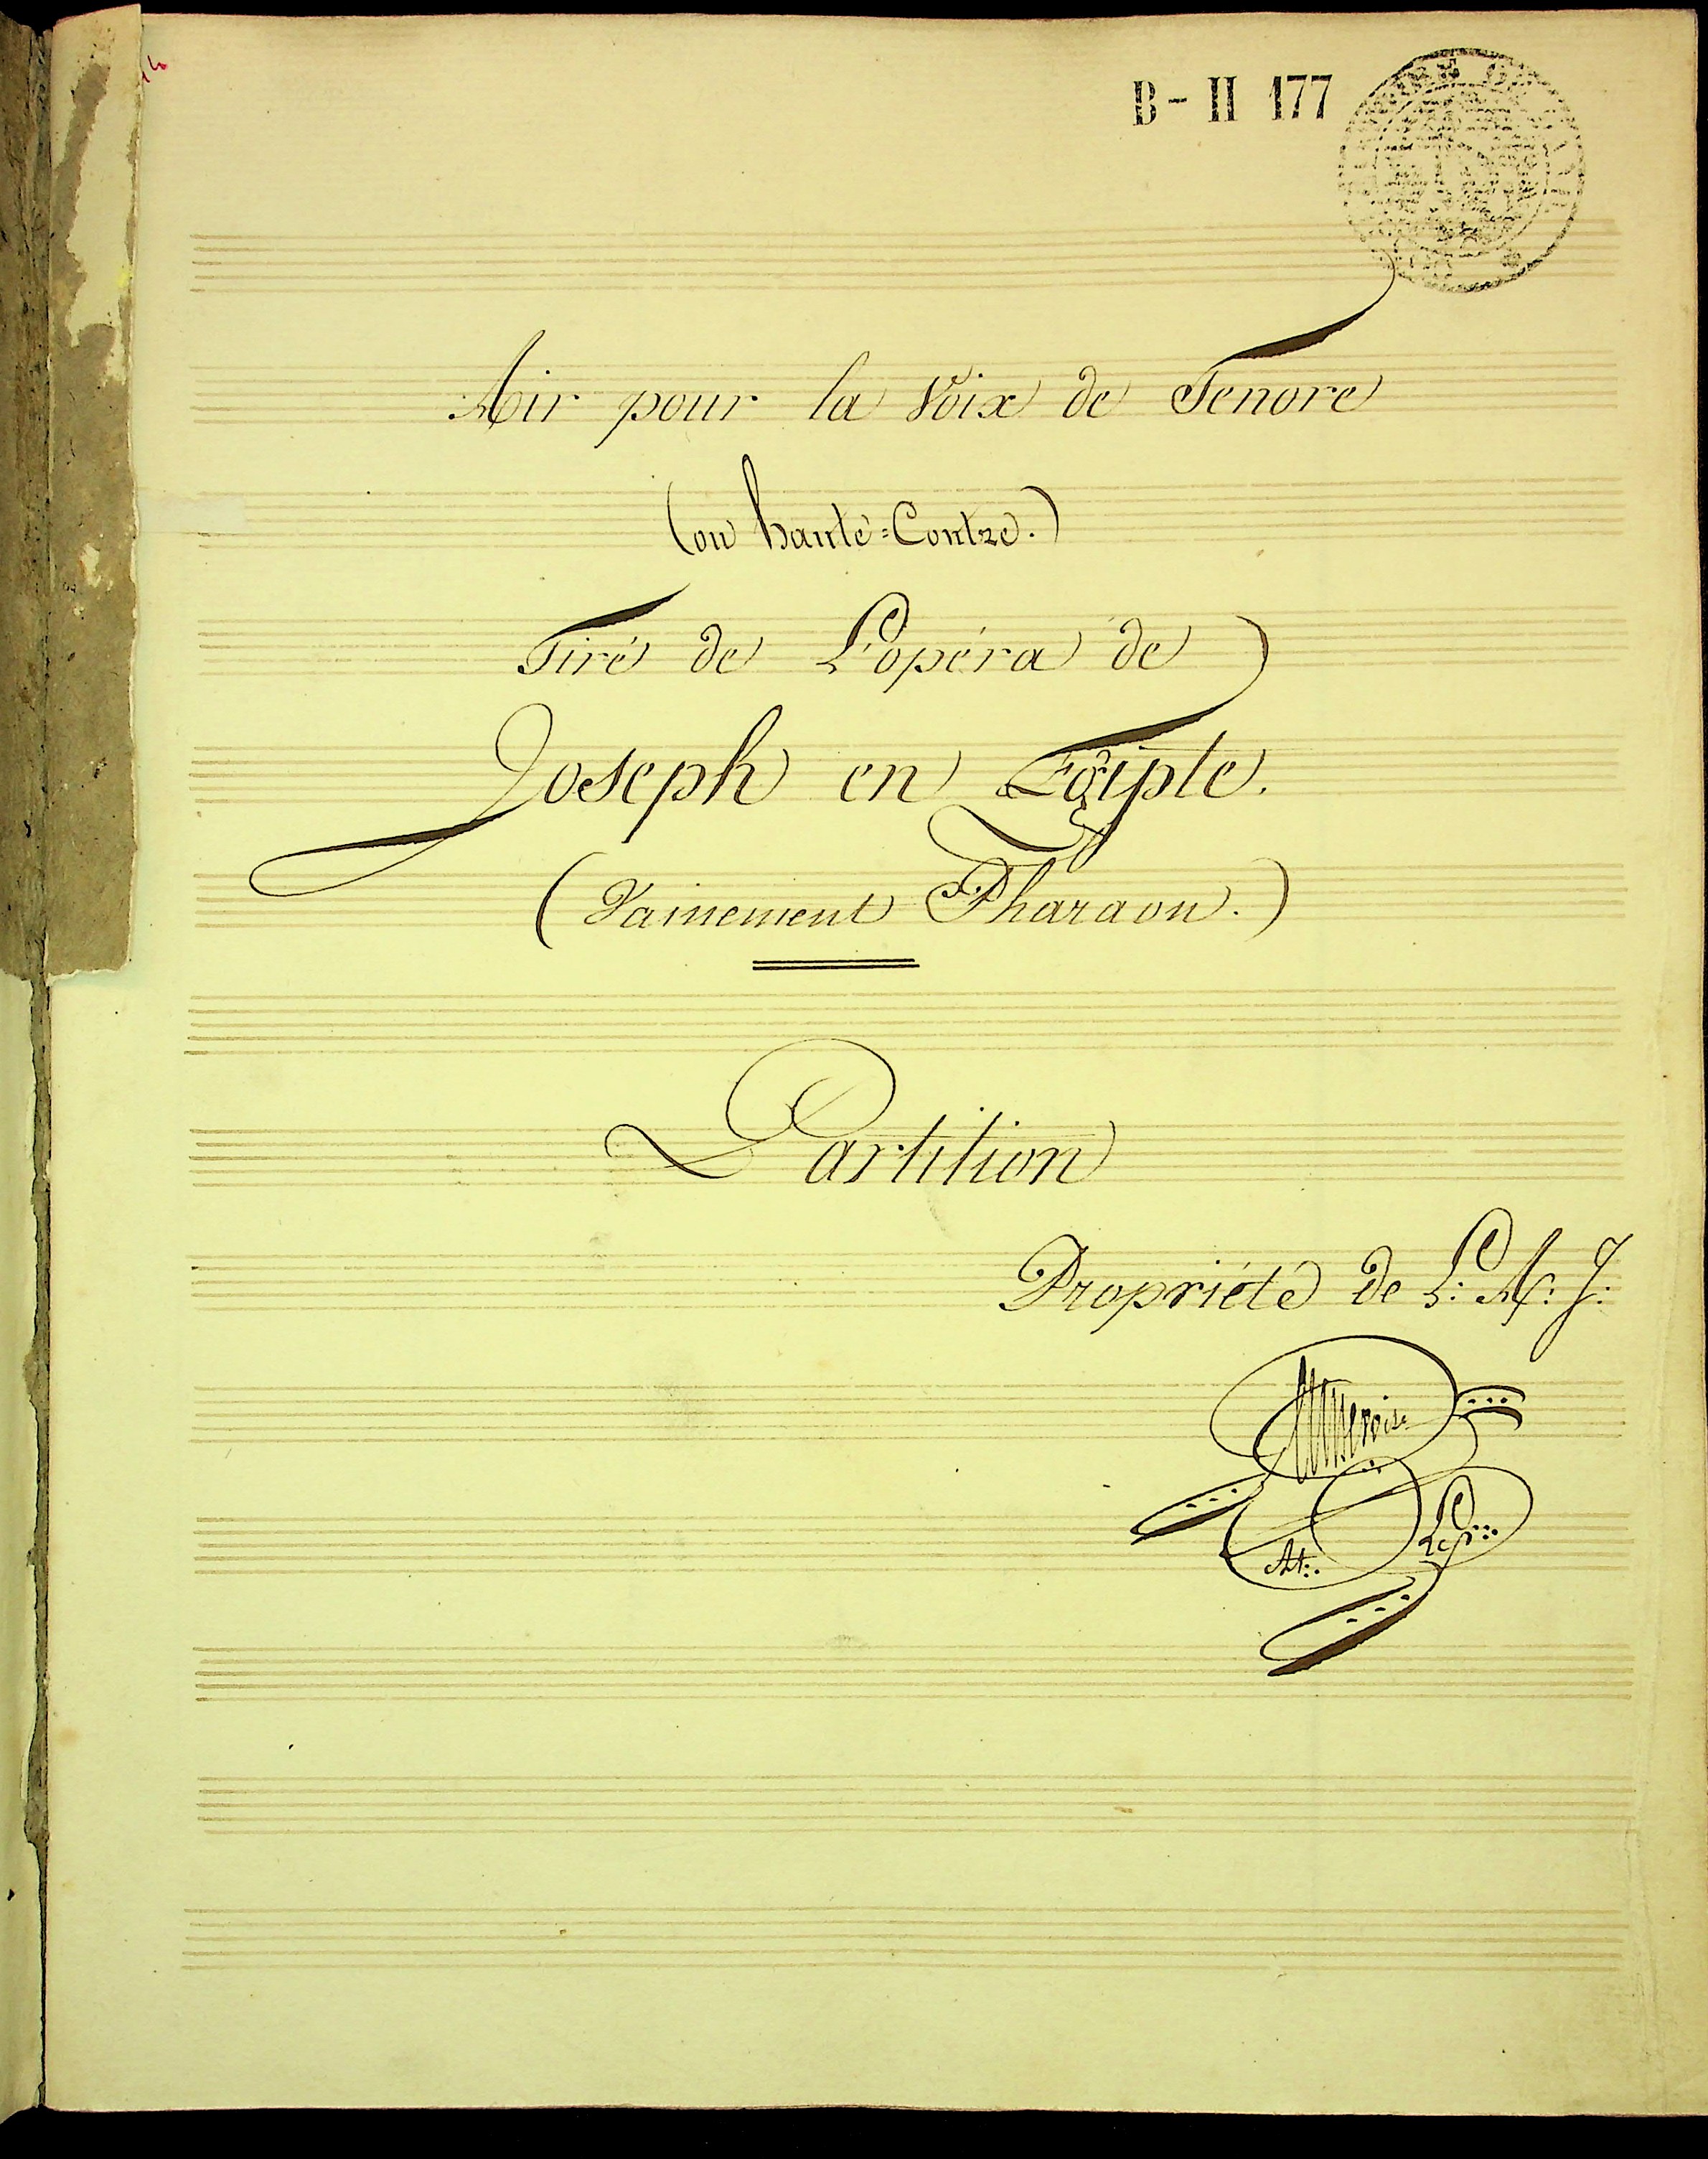 B - II 177
Air pour la Voix de Tenore
(ou haute=Contre.)
Tiré de L'opéra de
Joseph en Egipte.
(Vainement Pharaon.)
Partition
Propriété de L: A: J: